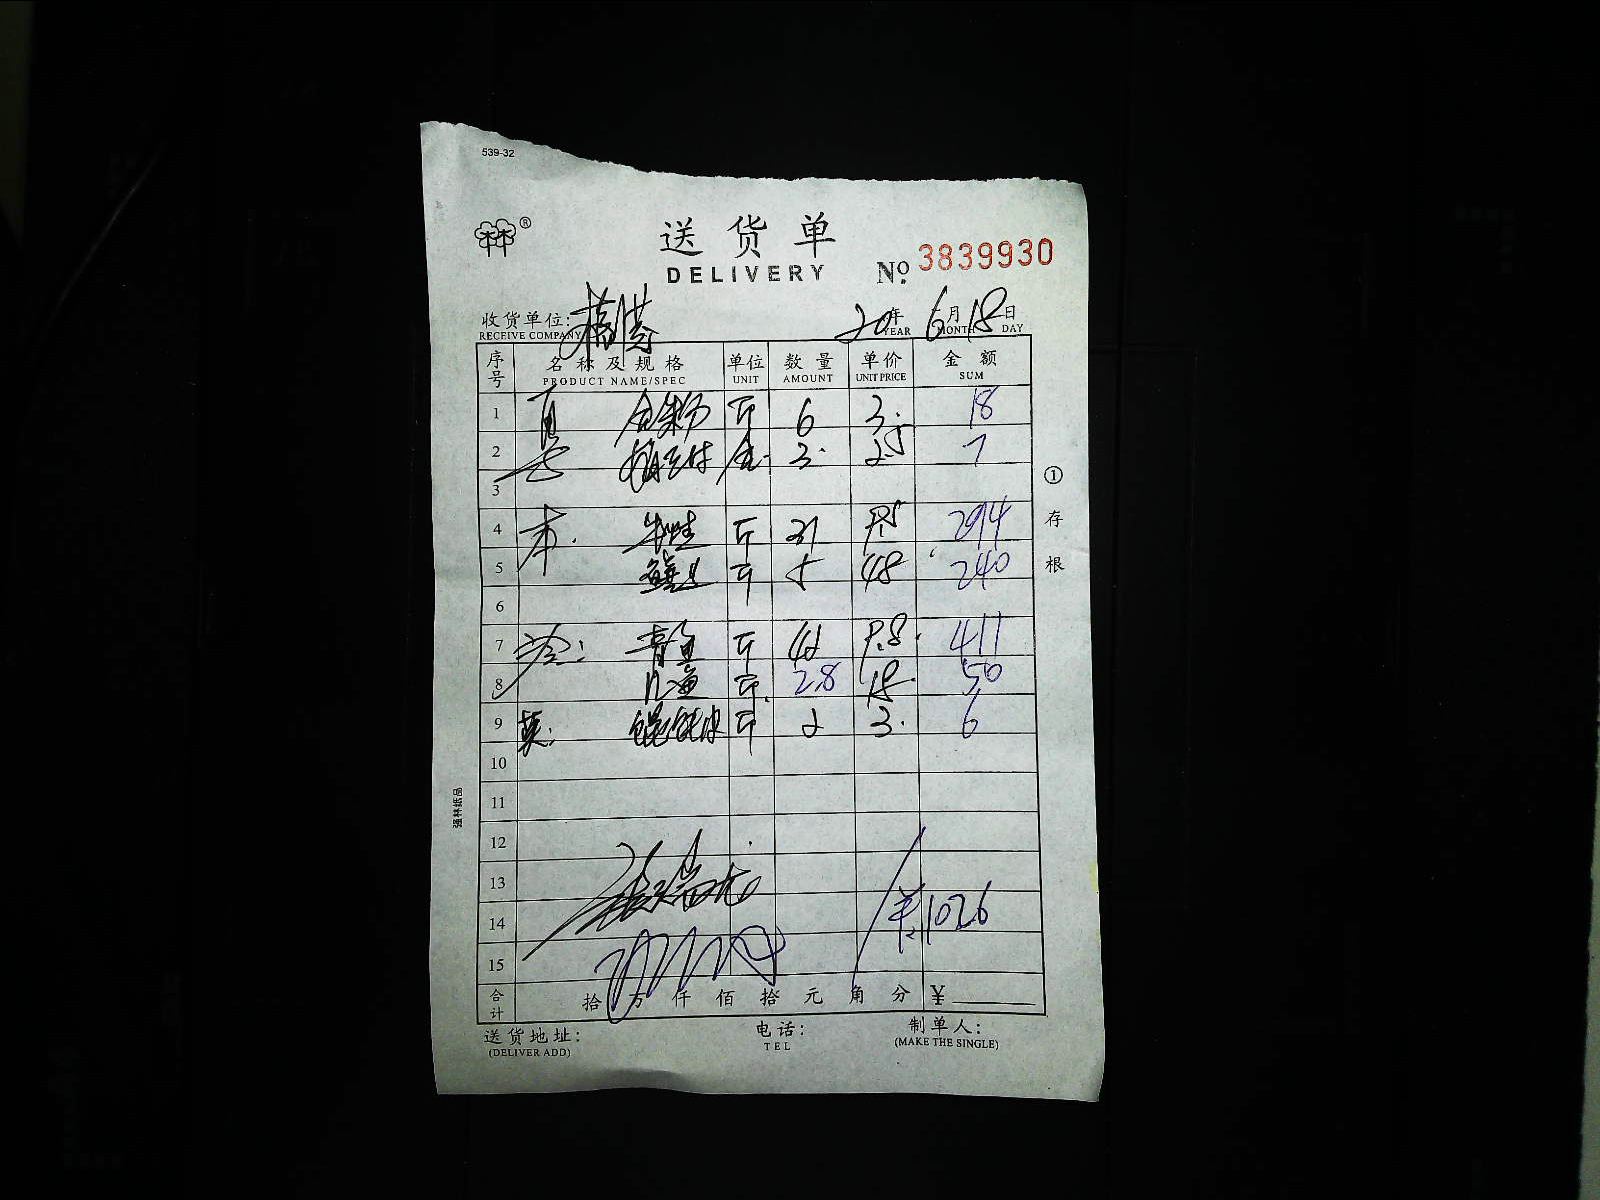 539-32
®
送货单
DELIVERY
№ 3839930
收货单位:
RECEIVE COMPANY
20年 6月18日
YEAR MONTH DAY
序号 名称及规格 单位 数量 单价 金额
PRODUCT NAME/SPEC UNIT AMOUNT UNIT PRICE SUM
1 斤 6 3. 18
2 3. 2.5 7
3
4 牛蛙 斤 31 9.5 294
5 斤 5 48 240
6
7 冷: 青鱼 斤 42 9.8 411
8 斤 2.8 18 50
9 馄饨皮 斤 2 3. 6
10
11
12
13
14 ¥:1026
15
合计 拾 万 仟 佰 拾 元 角 分 ¥
送货地址:
(DELIVER ADD)
电话:
TEL
制单人:
(MAKE THE SINGLE)
①存根
强林纸品